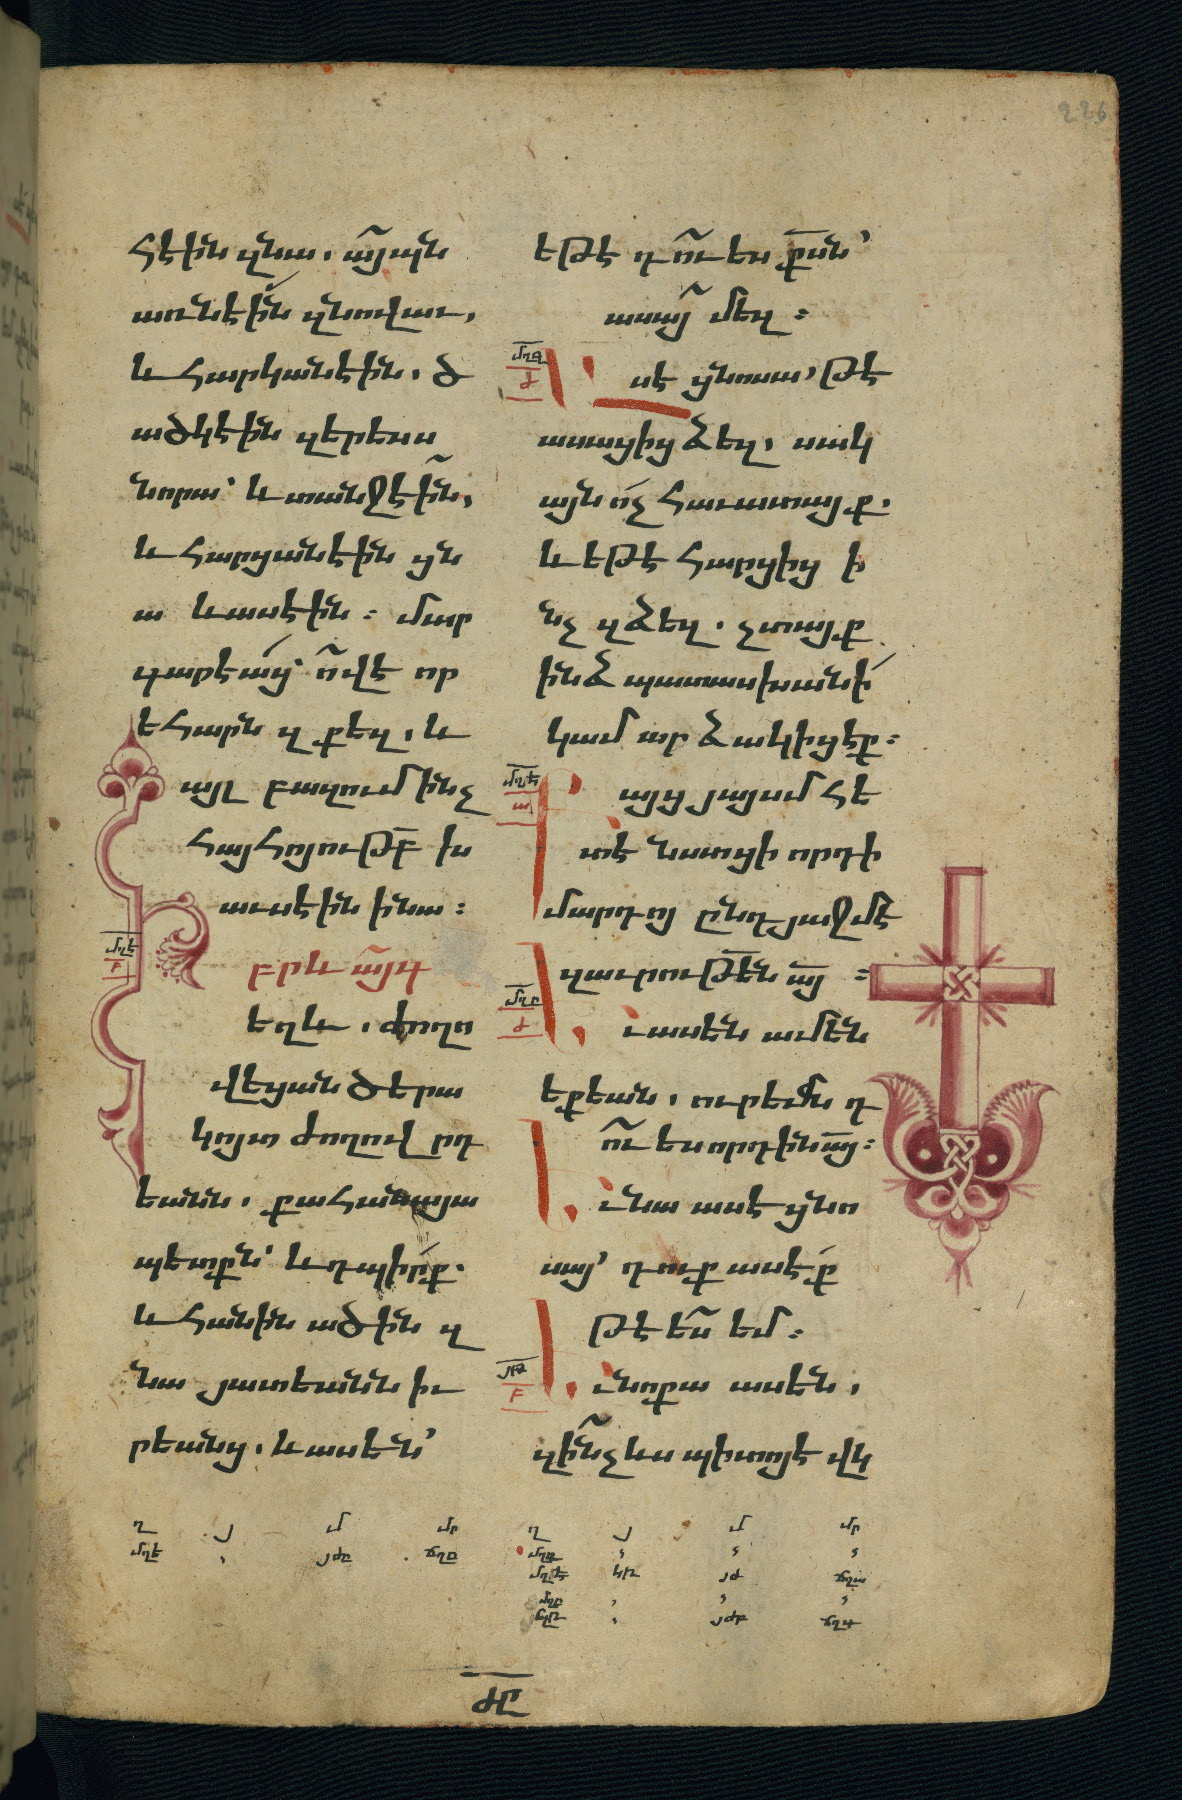 226
հէին զնա. ա՜յպն
առնէին զնովաւ,
և հարկանէին. ծ
ածկէին զերեսս
նորա՝ և տանջէին,
և հարցանէին ցն
ա և ասէին : մար
գարեա՛ց ո՞վ է որ
եհարն զքեզ. և
այլ բազում ինչ
հայհոյութբ խ
աւսէին ինա :
բրև այգ
եղև. ժողո
վեցան ծերա
կոյտ ժողովրդ
եանն. քահանայա
պետքն՝ և դպիրք.
և հանին ածին զ
նա յատեանն իւ
րեանց. և ասեն՝
եթէ դու ես քսն՝
ասա մեզ :
սէ ցնոսա՝ թէ
ասացից ձեզ. սակ
այն ո՛չ հաւատայք.
և եթէ հարցից ի
նչ զձեզ. չտայք
ինձ պատասխանի
կամ արձակիցէք :
այց յայսմ հե
տէ նստցի որդի
մարդոյ ընդ յաջմէ
զաւրութեն այ :
ւ ասեն ամեն
եքեան. ուրեմն դ
ու ես որդին այ :
ւ նա ասէ ցնո
սա՝ դուք ասէք
թէ ես եմ :
ւ նոքա ասեն,
զի՞նչ ևս պիտոյ է վկ
ղ յ մ մր
ղ յ մ մր
ԺԸ